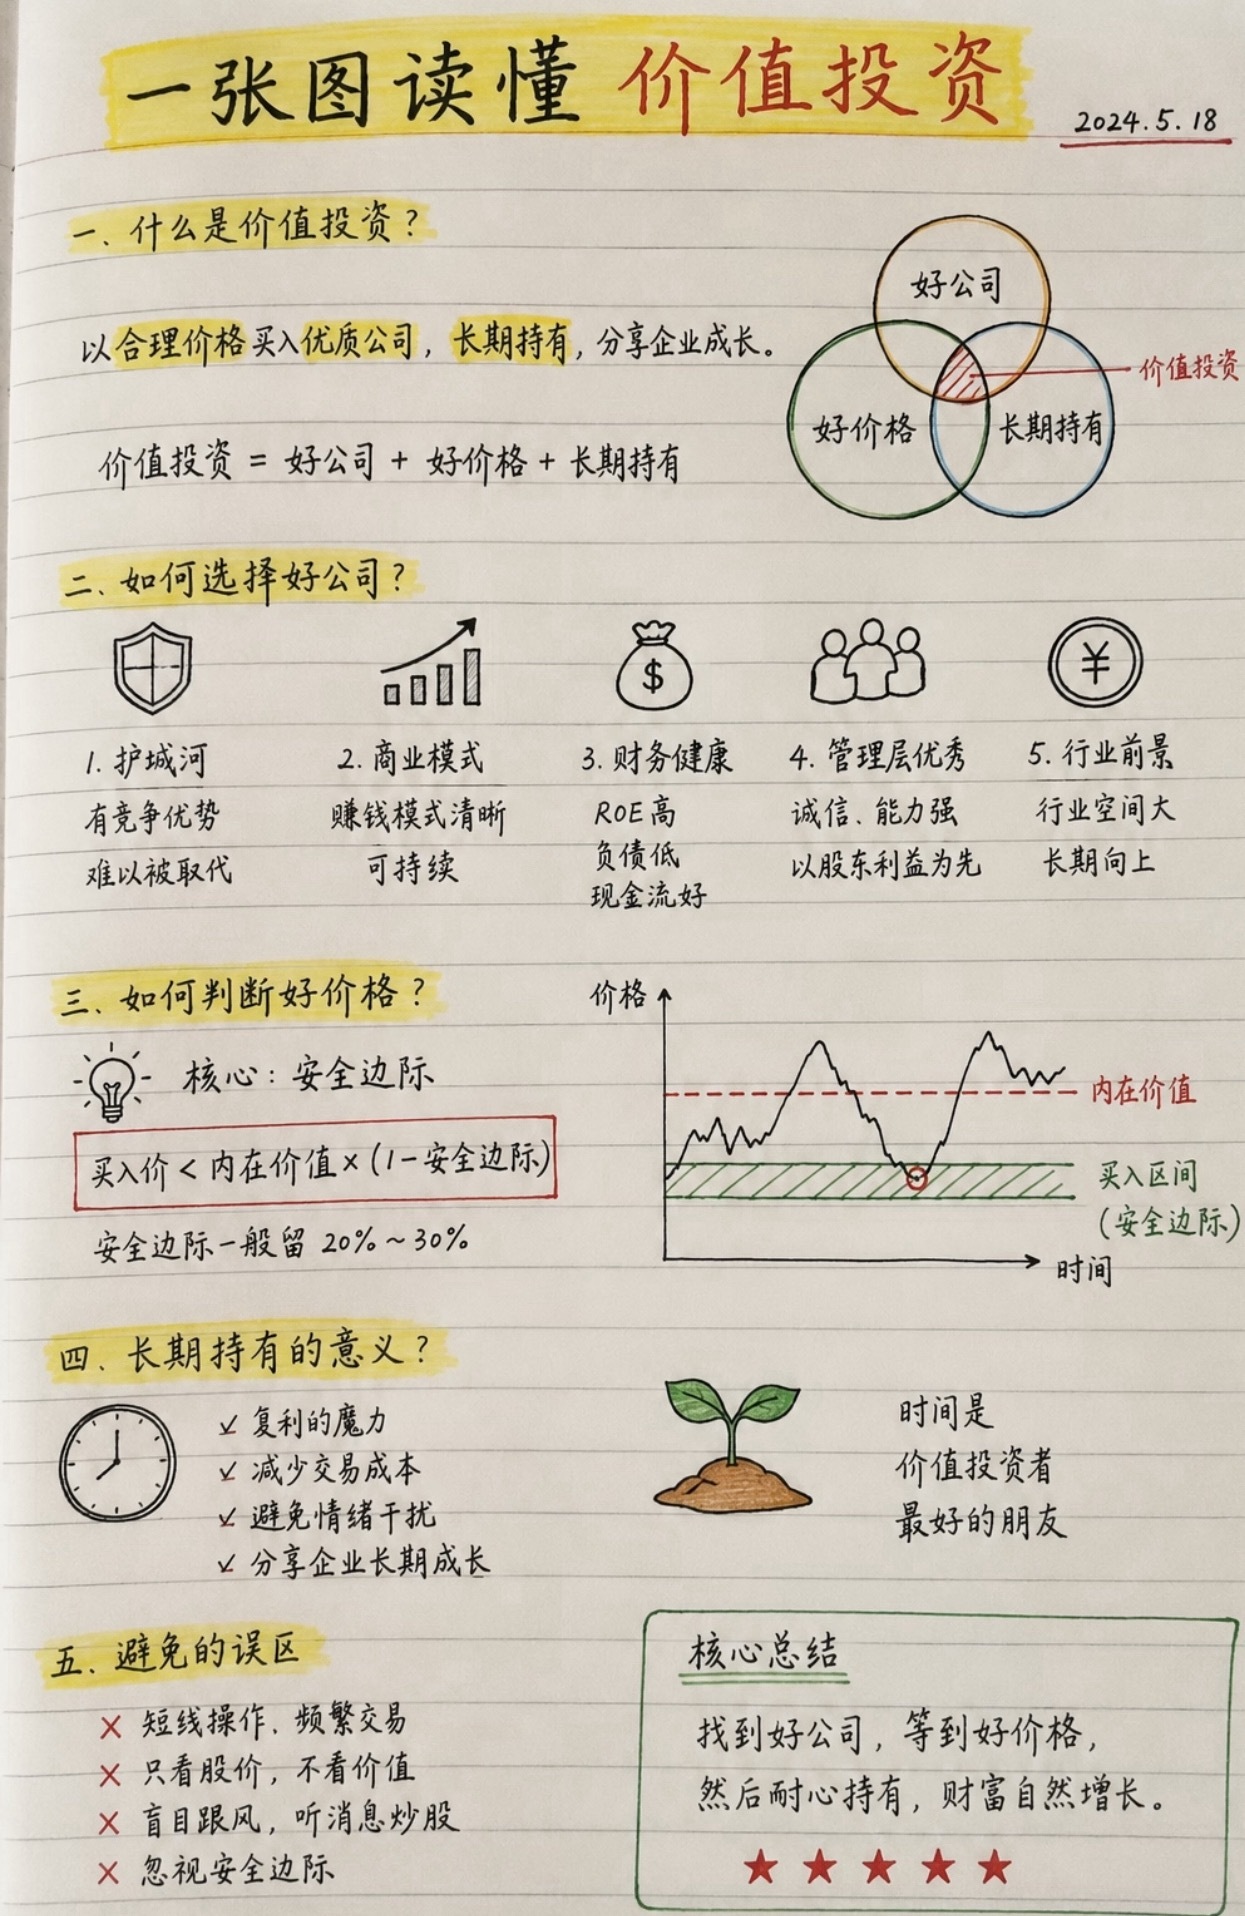 一张图读懂 价值投资
2024.5.18
一、什么是价值投资？
以合理价格买入优质公司，长期持有，分享企业成长。
价值投资 = 好公司 + 好价格 + 长期持有
好公司
好价格
长期持有
价值投资
二、如何选择好公司？
$
¥
1. 护城河
有竞争优势
难以被取代
2. 商业模式
赚钱模式清晰
可持续
3. 财务健康
ROE高
负债低
现金流好
4. 管理层优秀
诚信、能力强
以股东利益为先
5. 行业前景
行业空间大
长期向上
三、如何判断好价格？
核心：安全边际
买入价 < 内在价值 × (1-安全边际)
安全边际一般留 20% ~ 30%
价格
内在价值
买入区间
(安全边际)
时间
四、长期持有的意义？
✓ 复利的魔力
✓ 减少交易成本
✓ 避免情绪干扰
✓ 分享企业长期成长
时间是
价值投资者
最好的朋友
五、避免的误区
× 短线操作、频繁交易
× 只看股价，不看价值
× 盲目跟风，听消息炒股
× 忽视安全边际
核心总结
找到好公司，等到好价格，
然后耐心持有，财富自然增长。
★ ★ ★ ★ ★